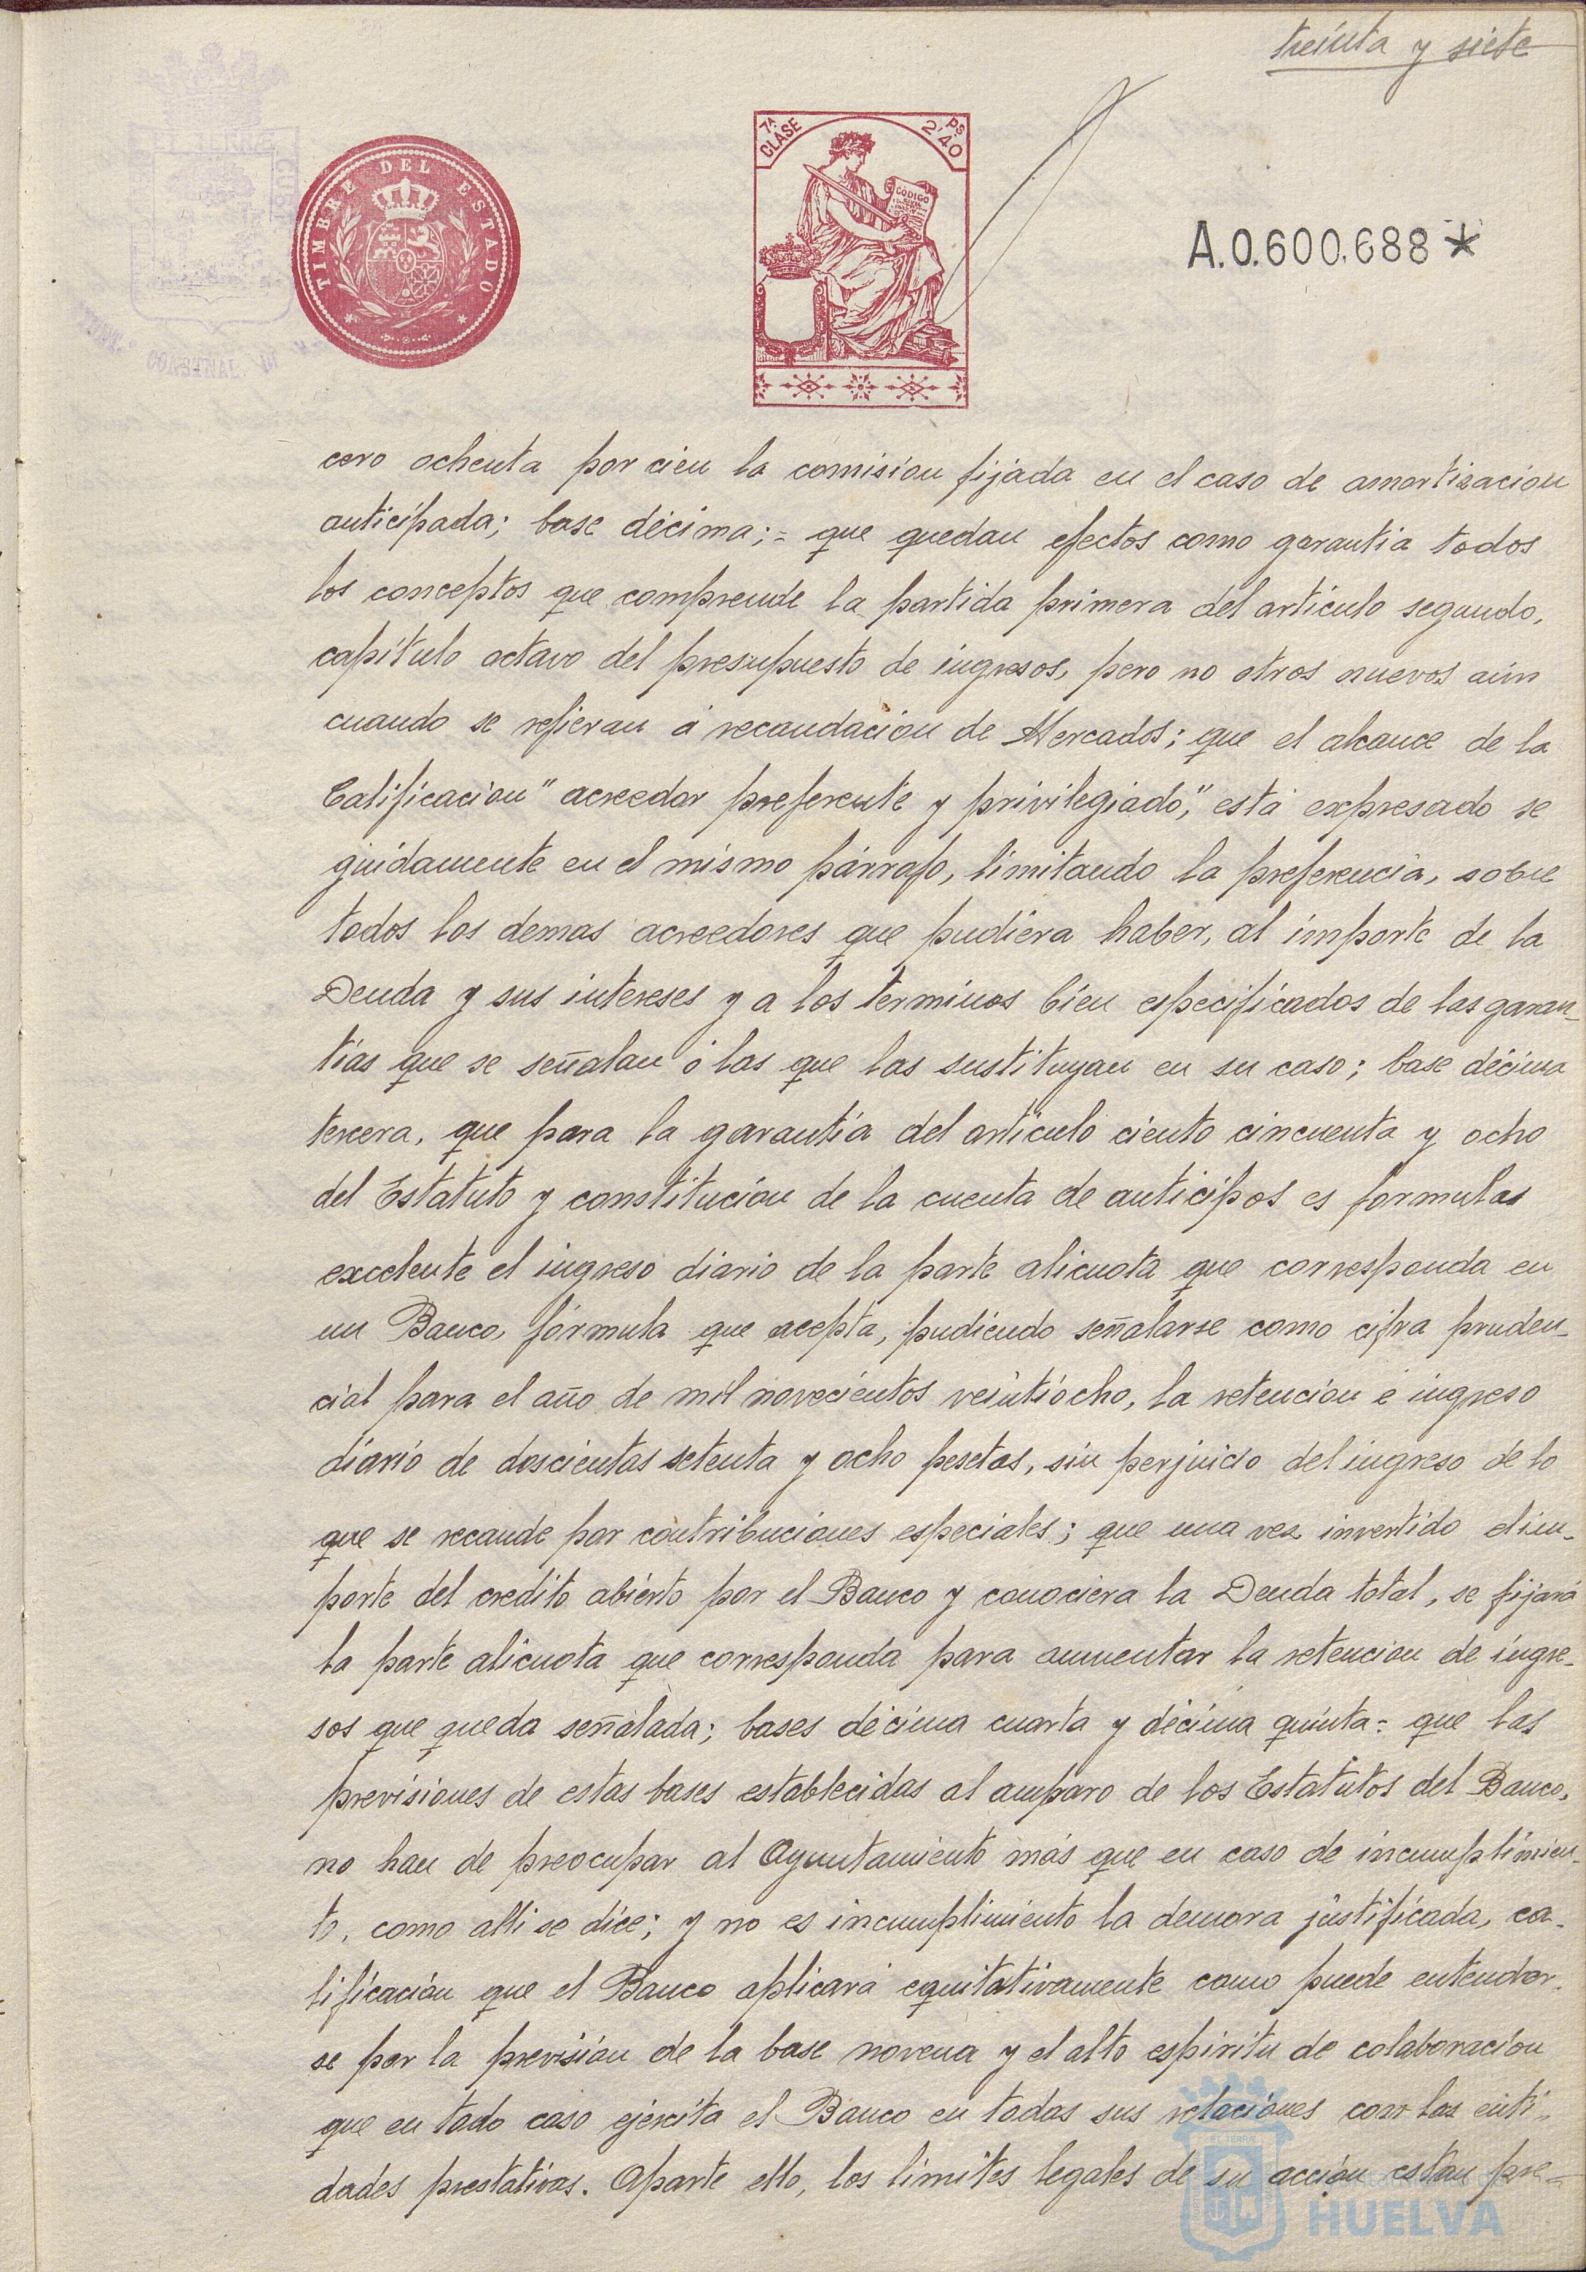 treinta y siete
TIMBRE DEL ESTADO
7ª CLASE
2'40 Ps
CODIGO
A.0.600.688*
cero ochenta por cien la comision fijada en el caso de amortizacion
anticipada; base décima;= que quedan efectos como garantia todos
los conceptos que comprende la partida primera del artículo segundo,
capítulo octavo del presupuesto de ingresos, pero no otros nuevos aún
cuando se refieran á recaudación de Mercados; que el alcance de la
Calificacion "acreedor preferente y privilegiado," está expresado se
guidamente en el mismo párrafo, limitando la preferencia, sobre
todos los demas acreedores que pudiera haber, al importe de la
Deuda y sus intereses y a los términos bien especificados de las garan-
tías que se señalan ó las que las sustituyan en su caso; base décima
tercera, que para la garantía del artículo ciento cincuenta y ocho
del Estatuto y constitución de la cuenta de anticipos es formulas
excelente el ingreso diario de la parte alicuota que corresponda en
un Banco, fórmula que acepta, pudiendo señalarse como cifra pruden-
cial para el año de mil novecientos veintiocho, la retención é ingreso
diario de doscientas setenta y ocho pesetas, sin perjuicio del ingreso de lo
que se recaude por contribuciones especiales; que una vez invertido el im-
porte del credito abierto por el Banco y conociera la Deuda total, se fijará
la parte alicuota que corresponda para aumentar la retencion de ingre-
sos que queda señalada; bases décima cuarta y décima quinta= que las
previsiones de estas bases establecidas al amparo de los Estatutos del Banco,
no han de preocupar al Ayuntamiento más que en caso de incumplimien-
to, como alli se dice; y no es incumplimiento la demora justificada, ca-
lificación que el Banco aplicará equitativamente como puede entender-
se por la previsión de la base novena y el alto espiritu de colaboración
que en todo caso ejercita el Banco en todas sus relaciones con las enti-
dades prestativas. Aparte ello, los límites legales de su acción estan pre-
HUELVA